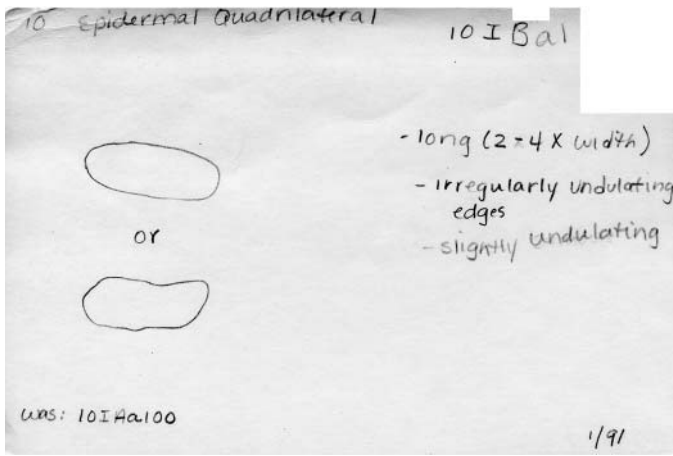 10 Epidermal Quadrilateral
10 I Bal
- long (2-4 X width)
- irregularly undulating
edges
or
- slightly undulating
was: 10IAa100
1/91